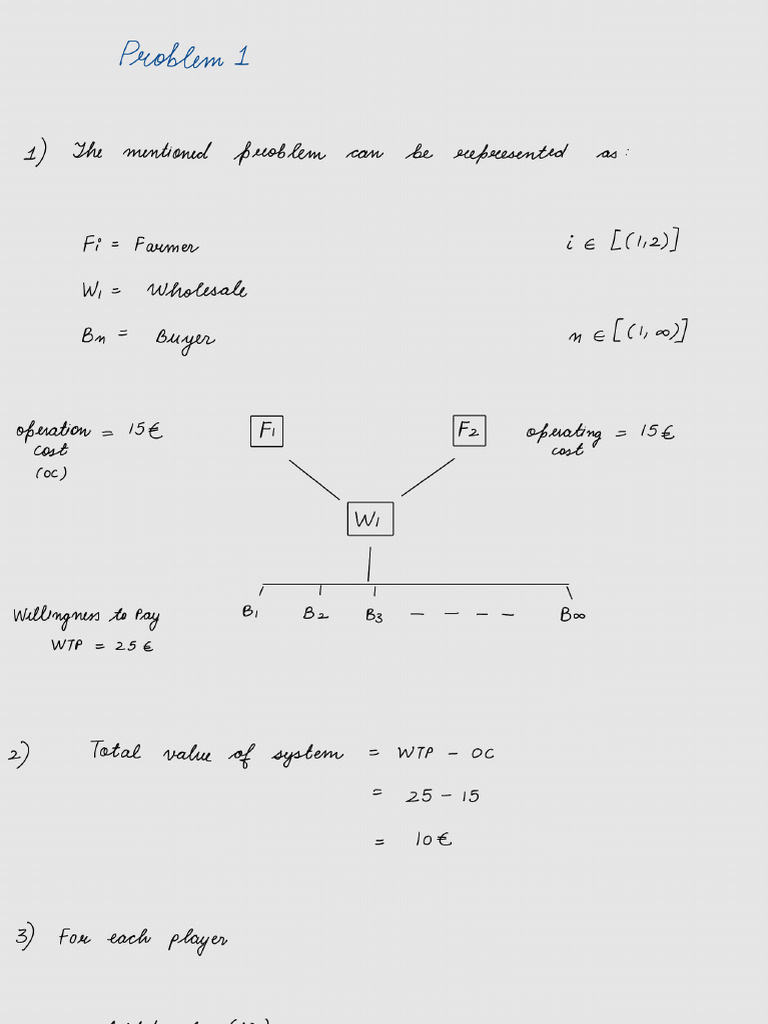 Problem 1
1) The mentioned problem can be represented as:
Fi = Farmer i ∈ [(1,2)]
W1 = Wholesale
Bn = Buyer n ∈ [(1, ∞)]
operation cost (OC) = 15€
F1
F2
operating cost = 15€
W1
B1 B2 B3 – – – – B∞
Willingness to Pay
WTP = 25€
2) Total value of system = WTP – OC
= 25 – 15
= 10€
3) For each player